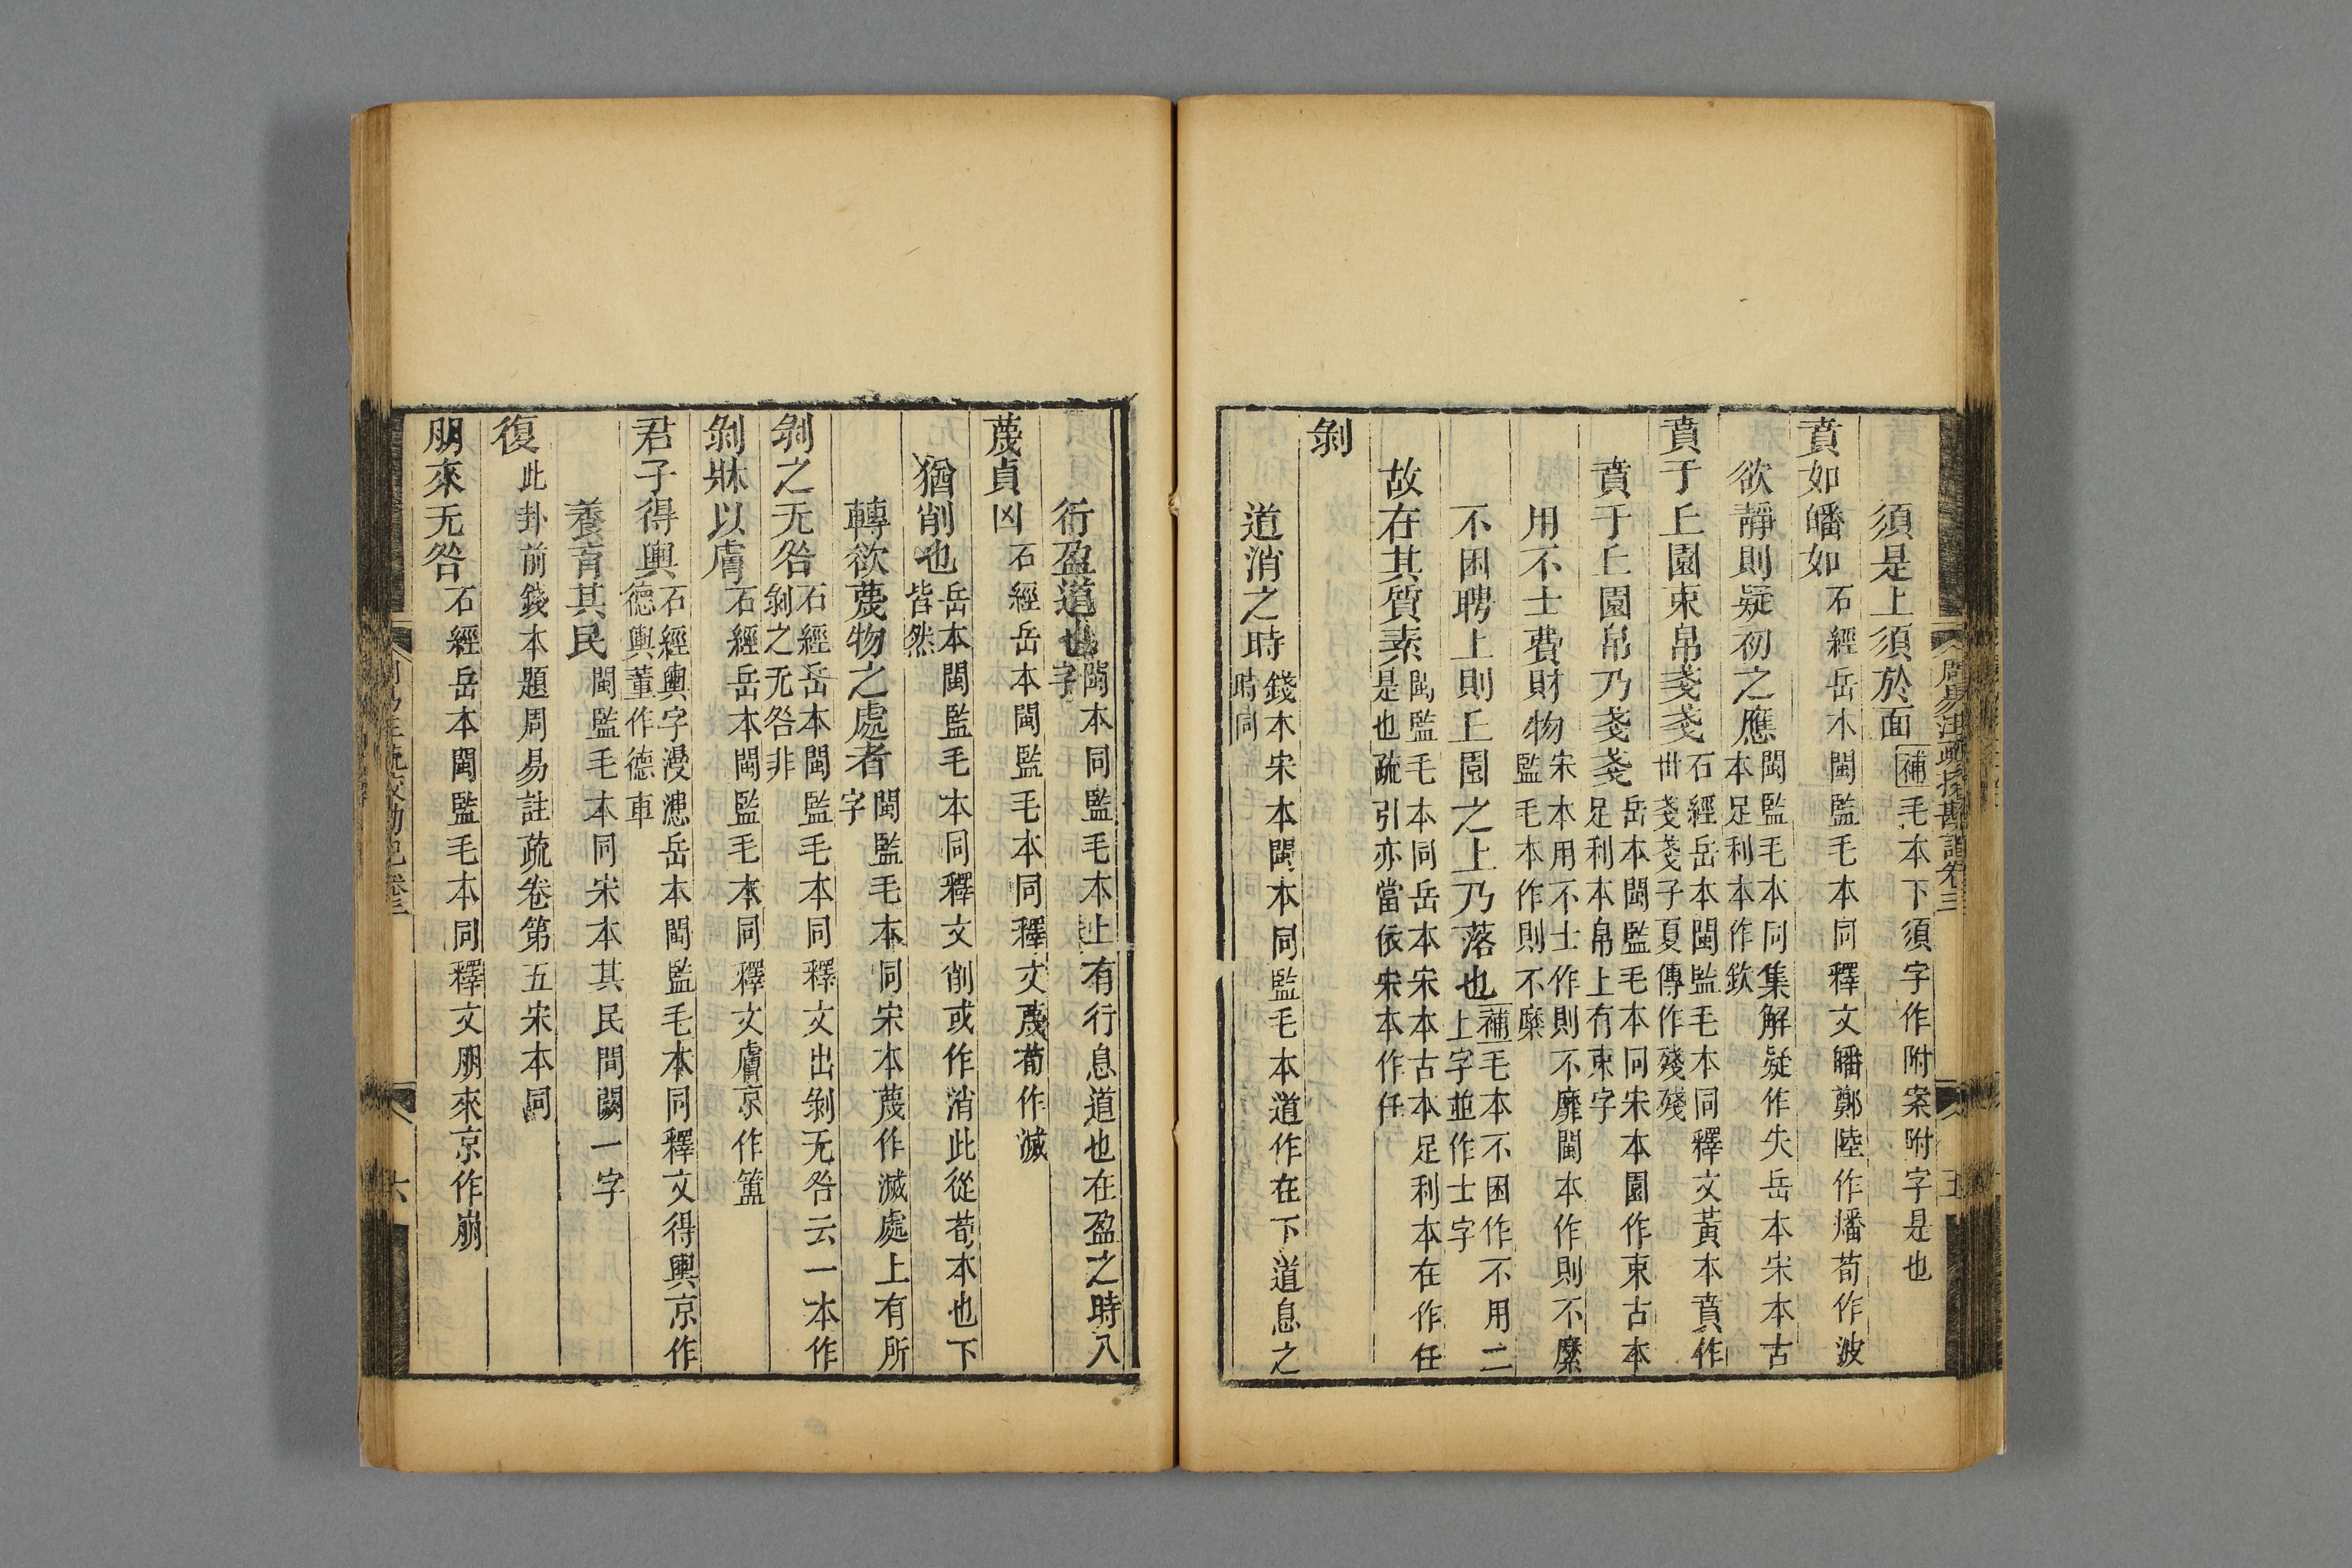 須是上須於面補毛本下須字作附案附字是也
賁如皤如石經岳本閩監毛本同釋文皤鄭陸作燔荀作波
欲靜則疑初之應閩監毛本同集解疑作失岳本宋本古
本足利本作欽
賁于丘園束帛戔戔石經岳本閩監毛本同釋文黃本賁作
世戔戔子夏傳作殘殘
賁于丘園帛乃戔戔岳本閩監毛本同宋本園作束古本
足利本帛上有束字
用不士費財物宋本用不士作則不靡閩本作則不糜
監毛本作則不糜
不困聘上則丘園之上乃落也補毛本不困作不用二
上字並作士字
故在其質素閩監毛本同岳本宋本古本足利本在作任
是也疏引亦當依宋本作任
剝
道消之時錢本宋本閩本同監毛本道作在下道息之
時同
周易注疏挍勘記卷三 五
衍盈道也閩本同監毛本上有行息道也在盈之時八
字
蔑貞凶石經岳本閩監毛本同釋文蔑荀作滅
猶削也岳本閩監毛本同釋文削或作消此從荀本也下
皆然
轉欲蔑物之處者閩監毛本同宋本蔑作滅處上有所
字
剝之无咎石經岳本閩監毛本同釋文出剝无咎云一本作
剝之无咎非
剝牀以膚石經岳本閩監毛本同釋文膚京作簠
君子得輿石經輿字漫漶岳本閩監毛本同釋文得輿京作
德輿董作德車
養育其民閩監毛本同宋本其民間闕一字
復此卦前錢本題周易註疏卷第五宋本同
朋來无咎石經岳本閩監毛本同釋文朋來京作崩
六